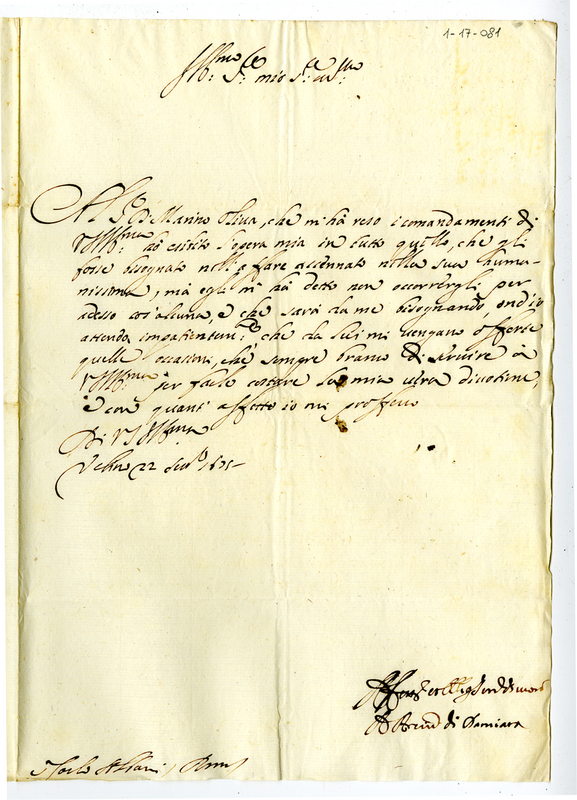 1-17-081
Ill:mo Sr: mio Sr: 
Al Sr Marino Oliua, che m'hà reso i comandamenti di
VS Ill:ma hò esibito l'opera mia in tutto quello, che gli
fosse bisognato nell'affare accennato nella sua huma-
nissima, mà egli m'hà detto non occorrergli per
adesso cos'alcuna, e che sarà da me bisognando, ond'io
attendo impatientem:te, che da lei mi uengano offerte
quelle occasioni, che sempre bramo di seruire à
VS Ill:ma per farle costare la mia uera diuotione,
e con quanto affetto io mi proffero
Di VS Ill:ma
22
di Damiata
S Carlo Roma